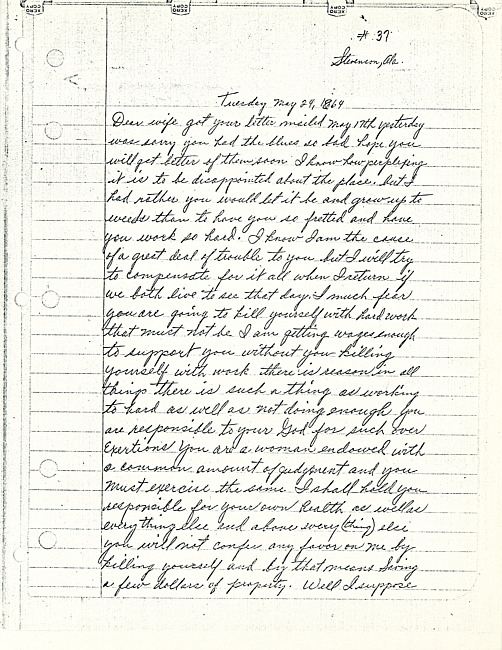 # 37
Stevenson, Ala.
Tuesday May 24, 1864
Dear wife, got your letter mailed May 17th yesterday
was sorry you had the blues so bad, hope you
will get letter of them soon I know how perplexing
it is to be disappointed about the place, but I
had rather you would let it be and grow up to
weeds than to have you so fretted and have
you work so hard. I know I am the cause
of a great deal of trouble to you but I will try
to compensate for it all when I return if
we both live to see that day. I much fear
you are going to kill yourself with hard work
that must not be I am getting wages enough
to support you without you killing
yourself with work. there is reason in all
things there is such a thing as working
to hard as well as not doing enough you
are responsible to your God for such over
Exertions You are a woman endowed with
a common amount of judgment and you
must exercise the same. I shall hold you
responsible for your own health as well as
everything else and above every (thing) else
you will not confer any favor on me by
killing yourself and by that means Saving
a few dollars of property. Well I suppose